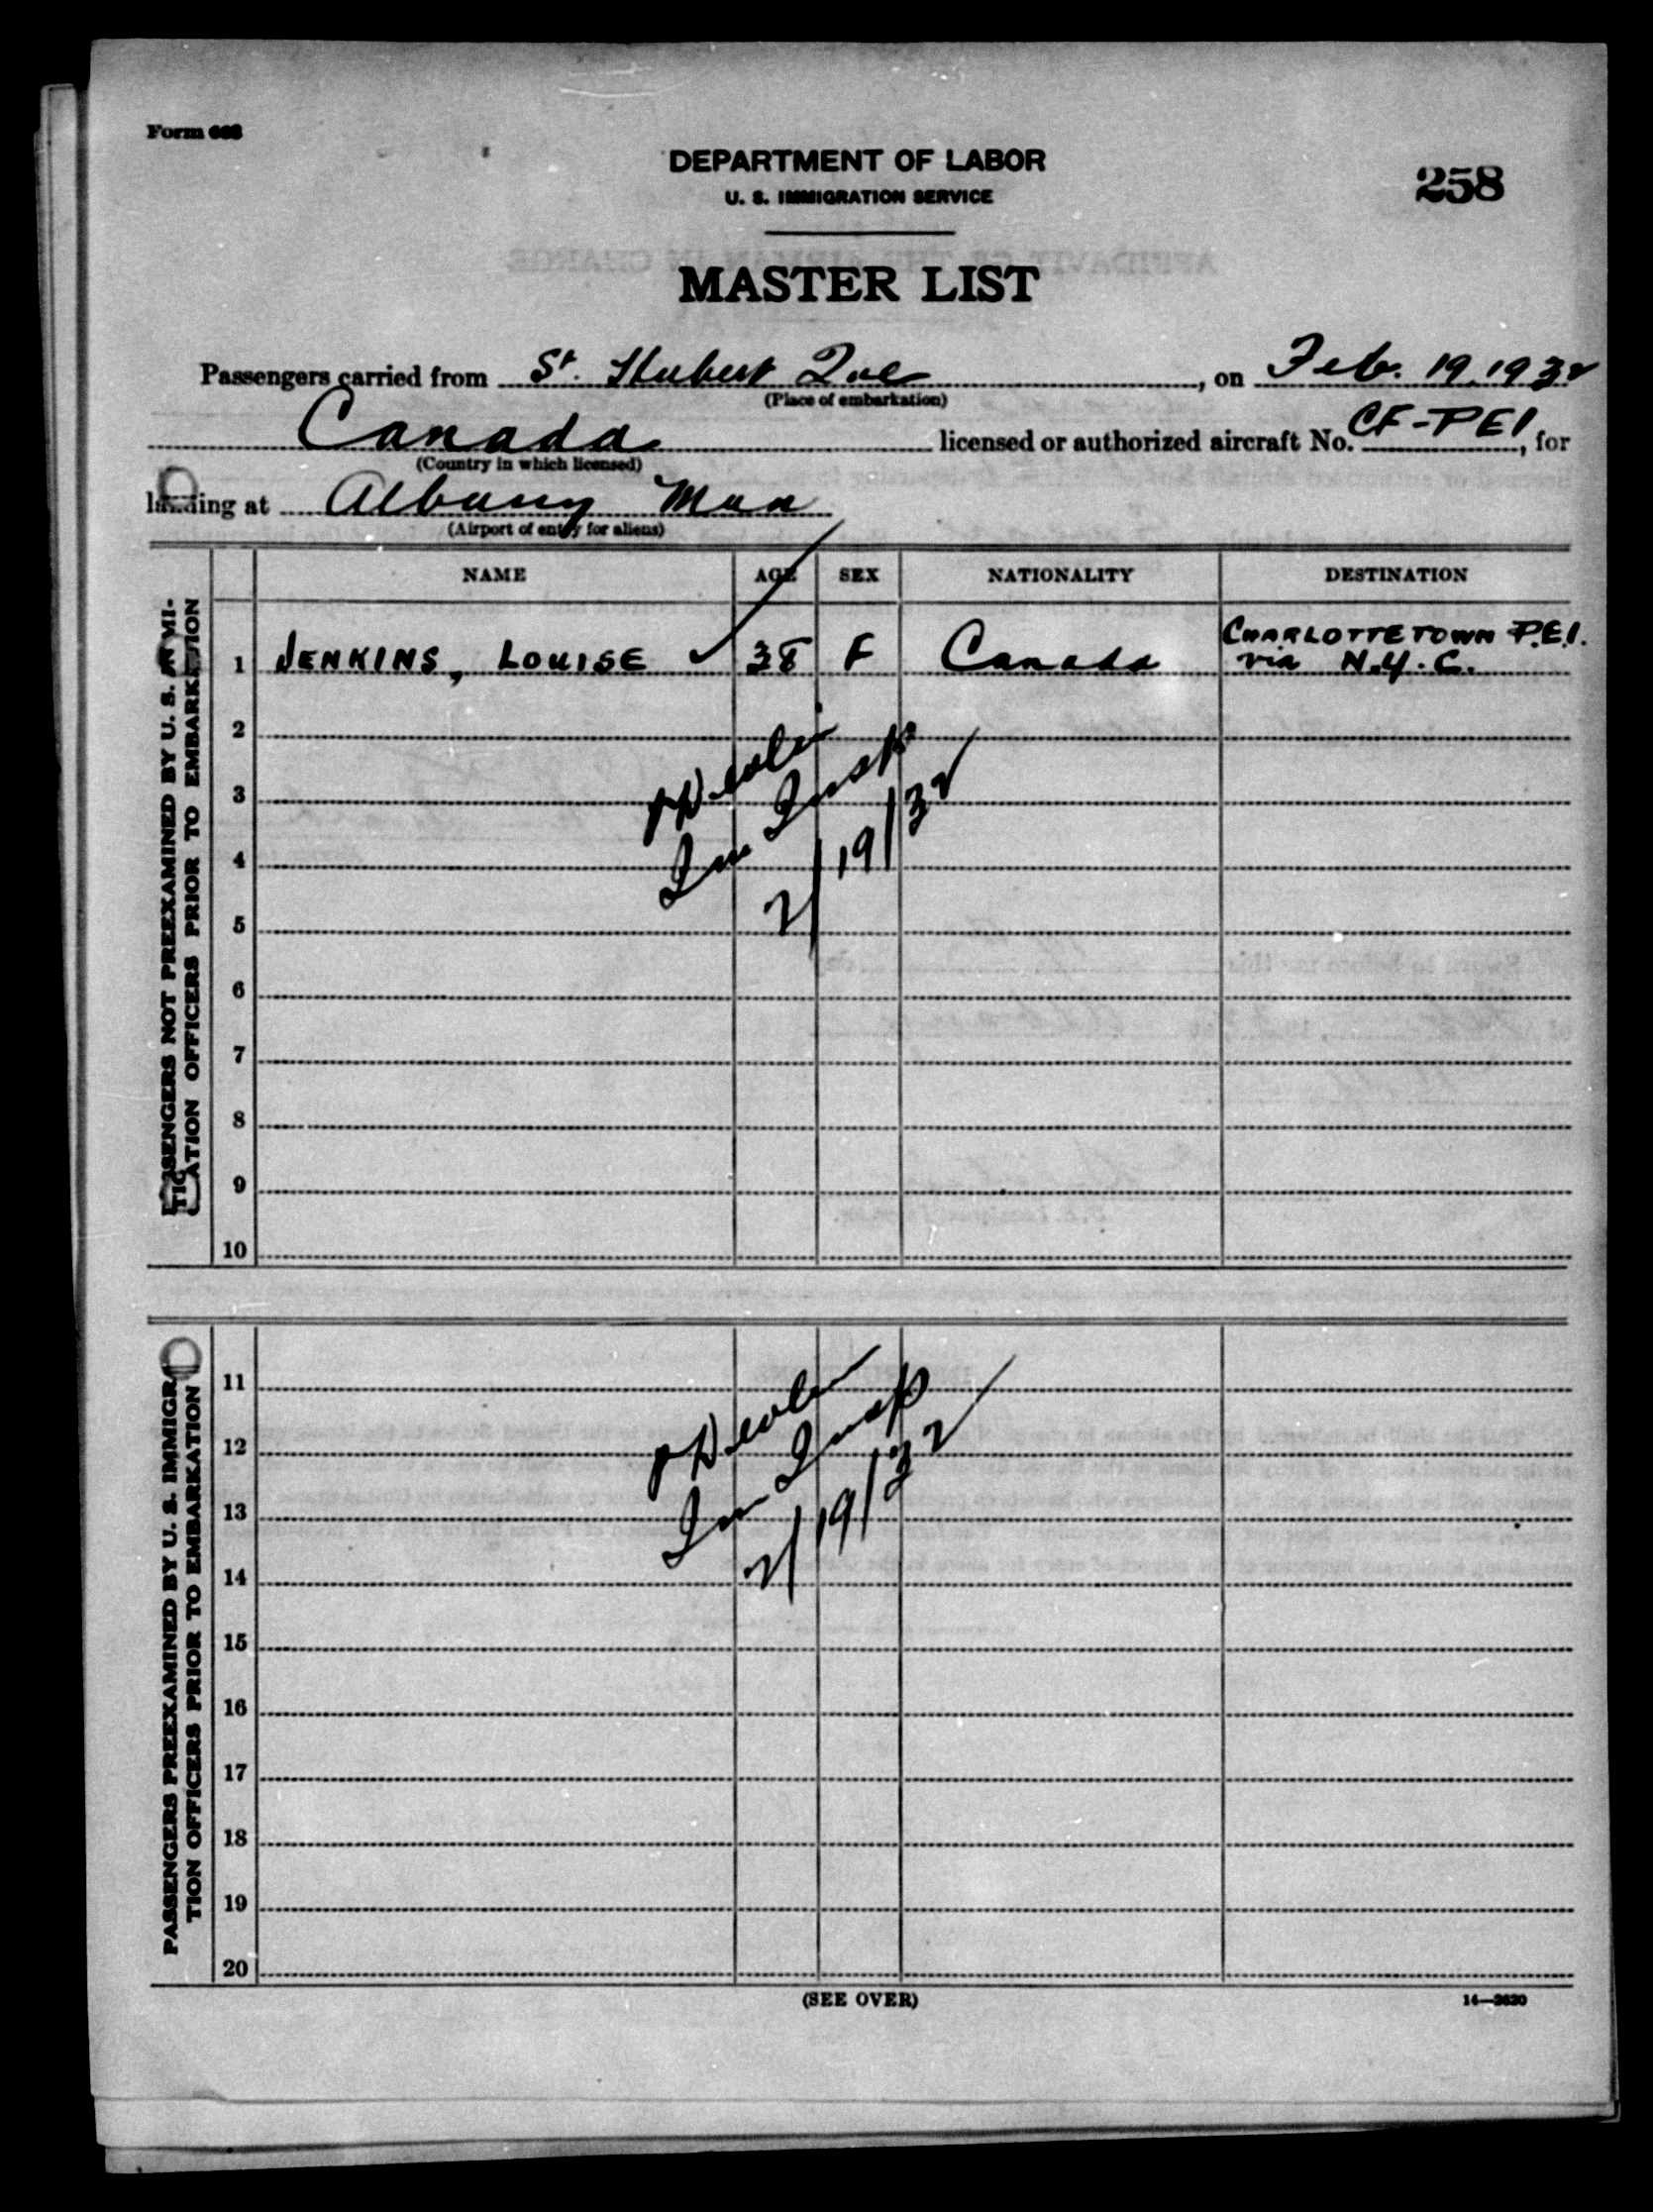 Form 668
DEPARTMENT OF LABOR
U. S. IMMIGRATION SERVICE
258
MASTER LIST
Passengers carried from St. Hubert Que, on Feb. 19. 1932
(Place of embarkation)
Canada licensed or authorized aircraft No. CF-PEI, for
(Country in which licensed)
landing at Albany Mun
(Airport of entry for aliens)
NAME AGE SEX NATIONALITY DESTINATION
PASSENGERS NOT PREEXAMINED BY U. S. IMMI-
GRATION OFFICERS PRIOR TO EMBARKATION
CHARLOTTETOWN P.E.I.
1 JENKINS, LOUISE ✓ 38 F Canada via N.Y.C.
2
3
4
5
6
7
8
9
10
Devlin
Im Insp
2/19/32
PASSENGERS PREEXAMINED BY U. S. IMMIGRA-
TION OFFICERS PRIOR TO EMBARKATION
11
12
13
14
15
16
17
18
19
20
Devlin
Im Insp
2/19/32
(SEE OVER)
14—2620